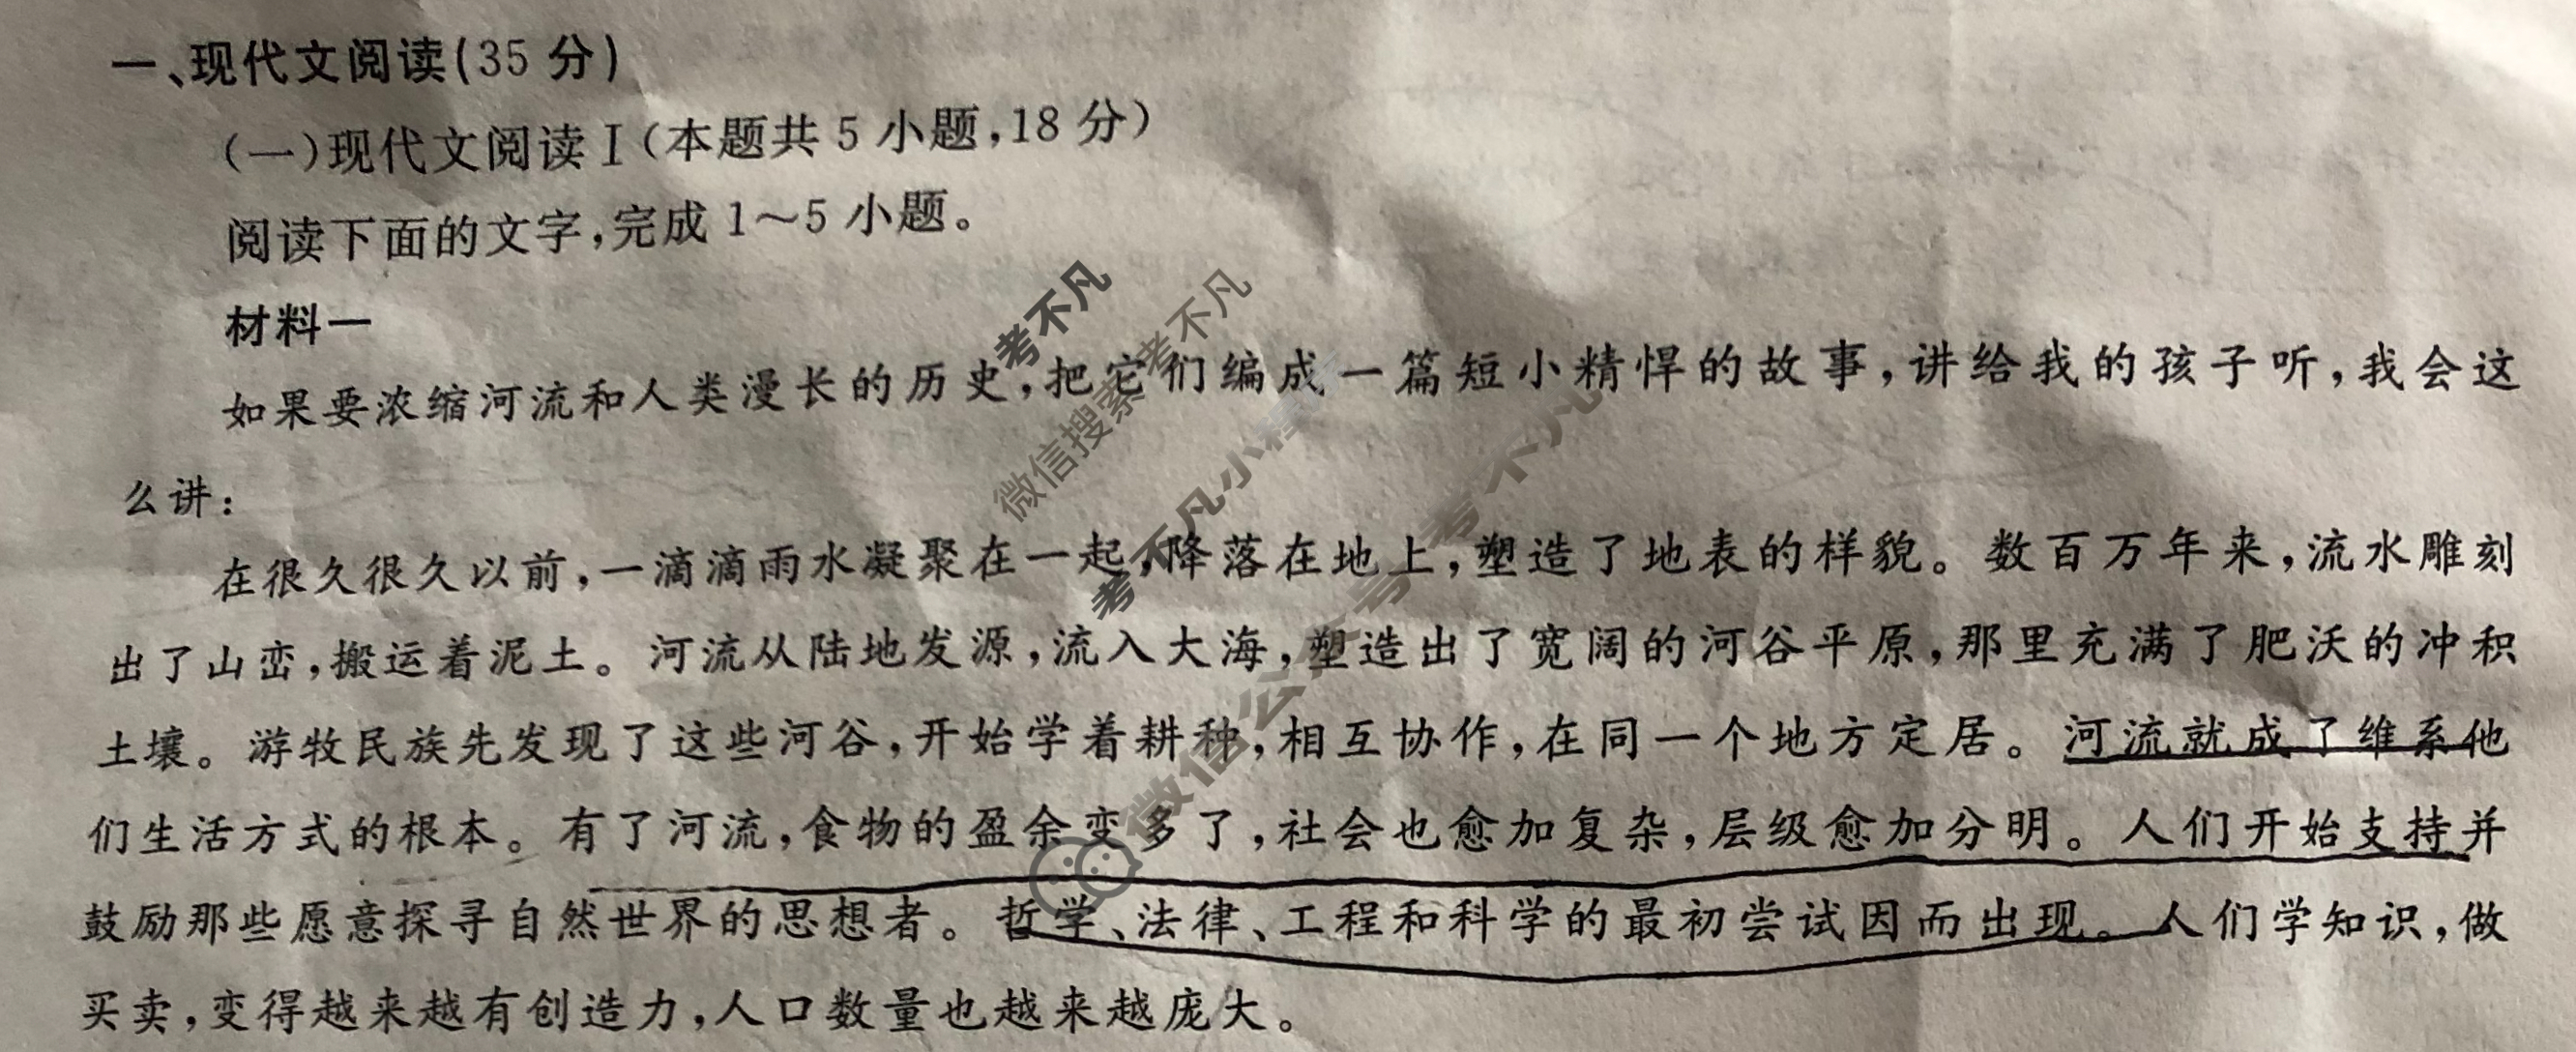 一、现代文阅读(35 分)
(一)现代文阅读Ⅰ(本题共 5 小题,18 分)
阅读下面的文字,完成 1～5 小题。
材料一
如果要浓缩河流和人类漫长的历史,把它们编成一篇短小精悍的故事,讲给我的孩子听,我会这
么讲:
在很久很久以前,一滴滴雨水凝聚在一起,降落在地上,塑造了地表的样貌。数百万年来,流水雕刻
出了山峦,搬运着泥土。河流从陆地发源,流入大海,塑造出了宽阔的河谷平原,那里充满了肥沃的冲积
土壤。游牧民族先发现了这些河谷,开始学着耕种,相互协作,在同一个地方定居。河流就成了维系他
们生活方式的根本。有了河流,食物的盈余变多了,社会也愈加复杂,层级愈加分明。人们开始支持并
鼓励那些愿意探寻自然世界的思想者。哲学、法律、工程和科学的最初尝试因而出现。人们学知识,做
买卖,变得越来越有创造力,人口数量也越来越庞大。
考不凡
微信搜索 考不凡
考不凡小程序
微信公众号 考不凡